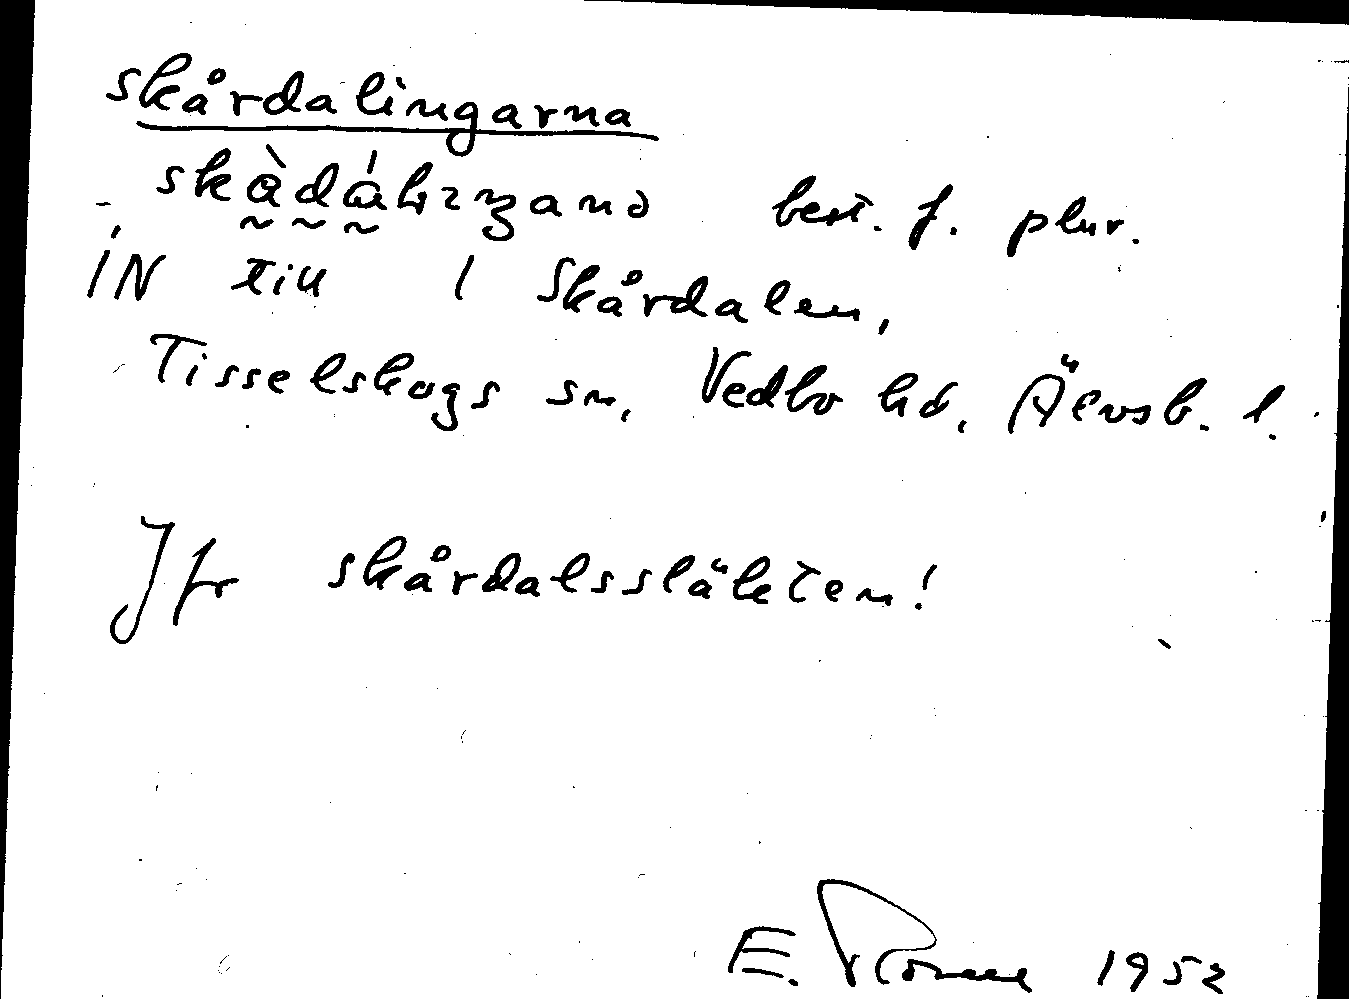 skårdalingarna
best. f. plur.
IN till 1 Skårdalen,
Tisselskogs sn, Vedbo hd, Älvsb. l.
Jfr skårdalssläkten!
E. 1952